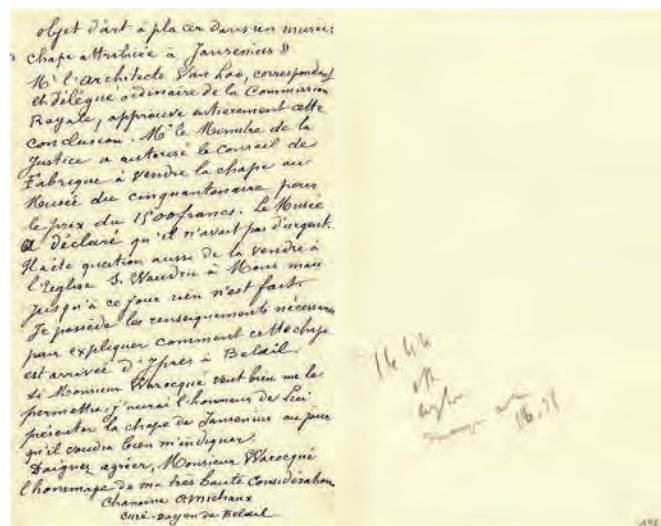 objet d'art à placer dans un musée:
chape attribuée à Jansenius »
Mr l'architecte Van Loo, correspondant
et délégué ordinaire de la Commission
Royale, approuve entierement cette
conclusion. Mr le Ministre de la
Justice a autorisé le Conseil de
Fabrique à vendre la chape au
Musée du cinquantenaire pour
le prix du 1500 francs. Le Musée
a déclaré qu'il n'avait pas d'argent.
Il a été question aussi de la vendre à
l'Eglise S. Waudru à Mons mais
jusqu'à ce jour rien n'est fait.
Je possède les renseignements nécessaires
pour expliquer comment cette chape
est arrivée d'Ypres à Belœil.
Si Monsieur Warocqué veut bien me le
permettre, j'aurai l'honneur de Lui
présenter la chape de Jansenius au jour
qu'il voudra bien m'indiquer.
Daignez agréer, Monsieur Warocqué
l'hommage de ma très haute Considération
Chanoine Michaux
Curé-Doyen de Belœil
1644